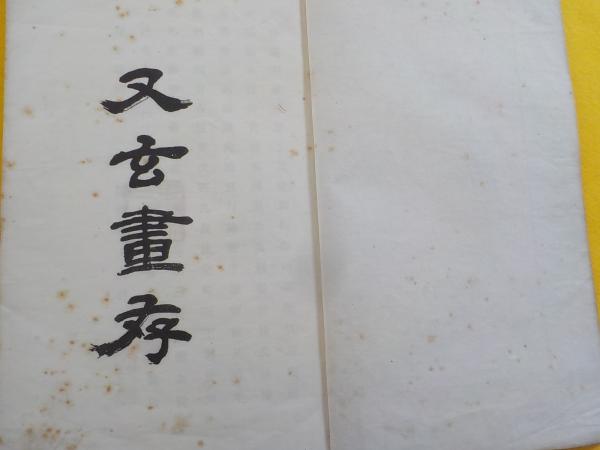 又玄畫存